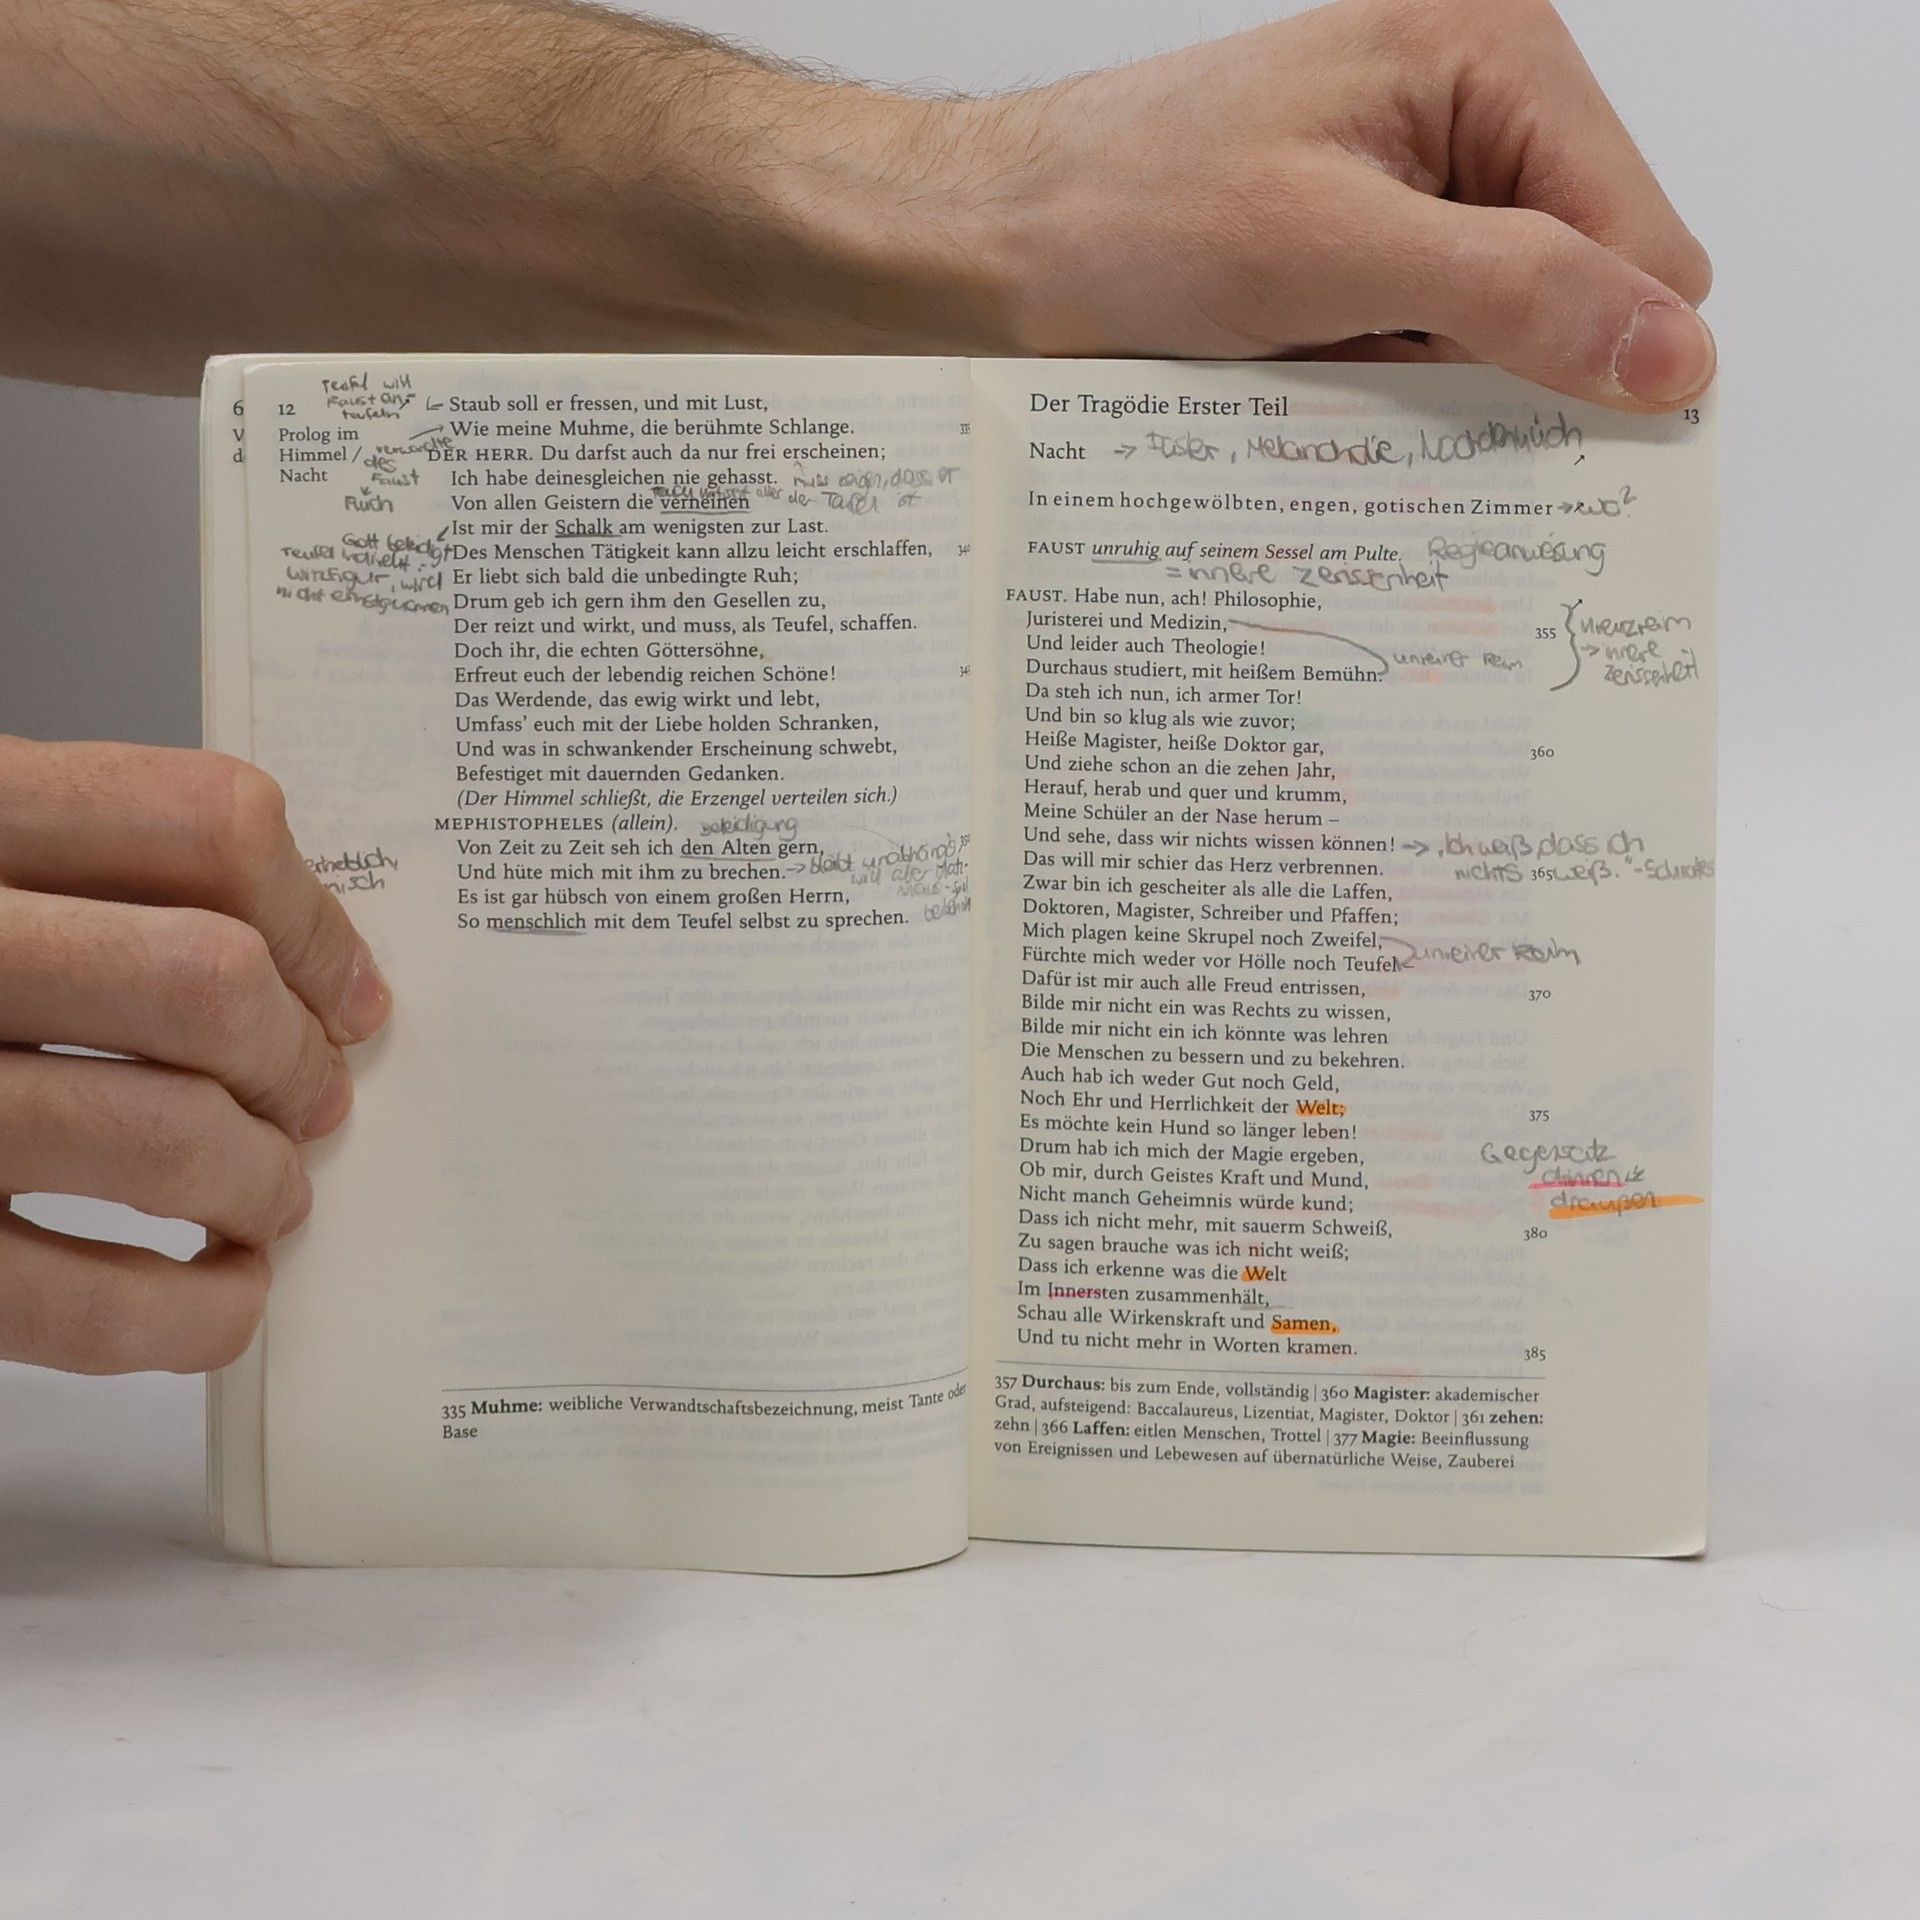 6
V
d
12
Prolog im
Himmel /
Nacht
Teufel will
Faust an-
Staub soll er fressen, und mit Lust,
Wie meine Muhme, die berühmte Schlange.
335
DER HERR. Du darfst auch da nur frei erscheinen;
Ich habe deinesgleichen nie gehasst.
Von allen Geistern die verneinen
Ist mir der Schalk am wenigsten zur Last.
Des Menschen Tätigkeit kann allzu leicht erschlaffen,
340
Er liebt sich bald die unbedingte Ruh;
Drum geb ich gern ihm den Gesellen zu,
Der reizt und wirkt, und muss, als Teufel, schaffen.
Doch ihr, die echten Göttersöhne,
Erfreut euch der lebendig reichen Schöne!
Das Werdende, das ewig wirkt und lebt,
Umfass' euch mit der Liebe holden Schranken,
Und was in schwankender Erscheinung schwebt,
Befestiget mit dauernden Gedanken.
(Der Himmel schließt, die Erzengel verteilen sich.)
MEPHISTOPHELES (allein). Beleidigung
Von Zeit zu Zeit seh ich den Alten gern,
Und hüte mich mit ihm zu brechen.
Es ist gar hübsch von einem großen Herrn,
So menschlich mit dem Teufel selbst zu sprechen.
des
Faust
Fluch
Gott beleidigt
Teufel indirekt:
Witzfigur, wird
nicht ernstgenommen
335 Muhme: weibliche Verwandtschaftsbezeichnung, meist Tante oder
Base
13
Der Tragödie Erster Teil
Nacht -> Düster, Melancholie, Nachdenklich
In einem hochgewölbten, engen, gotischen Zimmer -> wo?
FAUST unruhig auf seinem Sessel am Pulte. Regieanweisung
= innere Zerissenheit
FAUST. Habe nun, ach! Philosophie,
Juristerei und Medizin,
355
Kreuzreim
-> innere
Zerissenheit
Und leider auch Theologie!
unreiner Reim
Durchaus studiert, mit heißem Bemühn.
Da steh ich nun, ich armer Tor!
Und bin so klug als wie zuvor;
Heiße Magister, heiße Doktor gar,
360
Und ziehe schon an die zehen Jahr,
Herauf, herab und quer und krumm,
Meine Schüler an der Nase herum –
Und sehe, dass wir nichts wissen können! -> „Ich weiß, dass ich
nichts weiß." - Sokrates
Das will mir schier das Herz verbrennen.
365
Zwar bin ich gescheiter als alle die Laffen,
Doktoren, Magister, Schreiber und Pfaffen;
Mich plagen keine Skrupel noch Zweifel,
unreiner Reim
Fürchte mich weder vor Hölle noch Teufel –
Dafür ist mir auch alle Freud entrissen,
370
Bilde mir nicht ein was Rechts zu wissen,
Bilde mir nicht ein ich könnte was lehren
Die Menschen zu bessern und zu bekehren.
Auch hab ich weder Gut noch Geld,
Noch Ehr und Herrlichkeit der Welt;
375
Es möchte kein Hund so länger leben!
Drum hab ich mich der Magie ergeben,
Gegensatz
drinnen &
draußen
Ob mir, durch Geistes Kraft und Mund,
Nicht manch Geheimnis würde kund;
Dass ich nicht mehr, mit sauerm Schweiß,
380
Zu sagen brauche was ich nicht weiß;
Dass ich erkenne was die Welt
Im Innersten zusammenhält,
Schau alle Wirkenskraft und Samen,
Und tu nicht mehr in Worten kramen.
385
357 Durchaus: bis zum Ende, vollständig | 360 Magister: akademischer
Grad, aufsteigend: Baccalaureus, Lizentiat, Magister, Doktor | 361 zehen:
zehn | 366 Laffen: eitlen Menschen, Trottel | 377 Magie: Beeinflussung
von Ereignissen und Lebewesen auf übernatürliche Weise, Zauberei